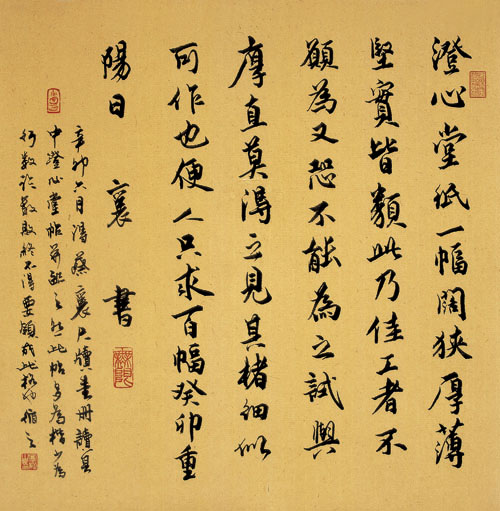 澄心堂紙一幅闊狹厚薄
堅實皆類此乃佳工者不
願為又恐不能為之試與
厚直莫得之見其楮細似
可作也便人只求百幅癸卯重
陽日 襄書
辛卯六月得蔡襄尺牘冊讀其
中澄心堂帖之此帖多為楷少為
行數臨數敗終不得要領此之